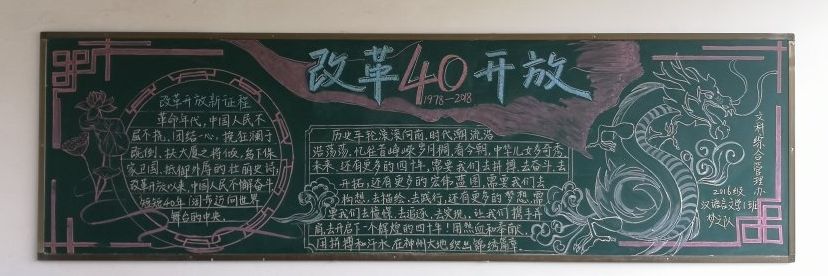 改革40开放
1978—2018
改革开放新征程
革命年代,中国人民不
屈不挠,团结一心,挽狂澜于
既倒,扶大厦之将倾,写下保
家卫国,抵御外辱的壮丽史诗,
改革开放以来,中国人民不懈奋斗
短短40年,阔步迈向世界
舞台的中央。
历史车轮滚滚向前,时代潮流浩
浩荡荡,忆往昔峥嵘岁月稠,看今朝,中华儿女多奇秀
未来,还有更多的四十年,需要我们去拼搏、去奋斗、去
开拓;还有更多的宏伟蓝图,需要我们去
构想、去描绘、去践行;还有更多的梦想,需
要我们去憧憬、去追逐、去实现,让我们携手并
肩,去开启下一个辉煌的四十年!用热血和奉献、
用拼搏和汗水,在神州大地织出锦绣篇章
文科综合管理办
2016级
汉语言文学1班
梦之队